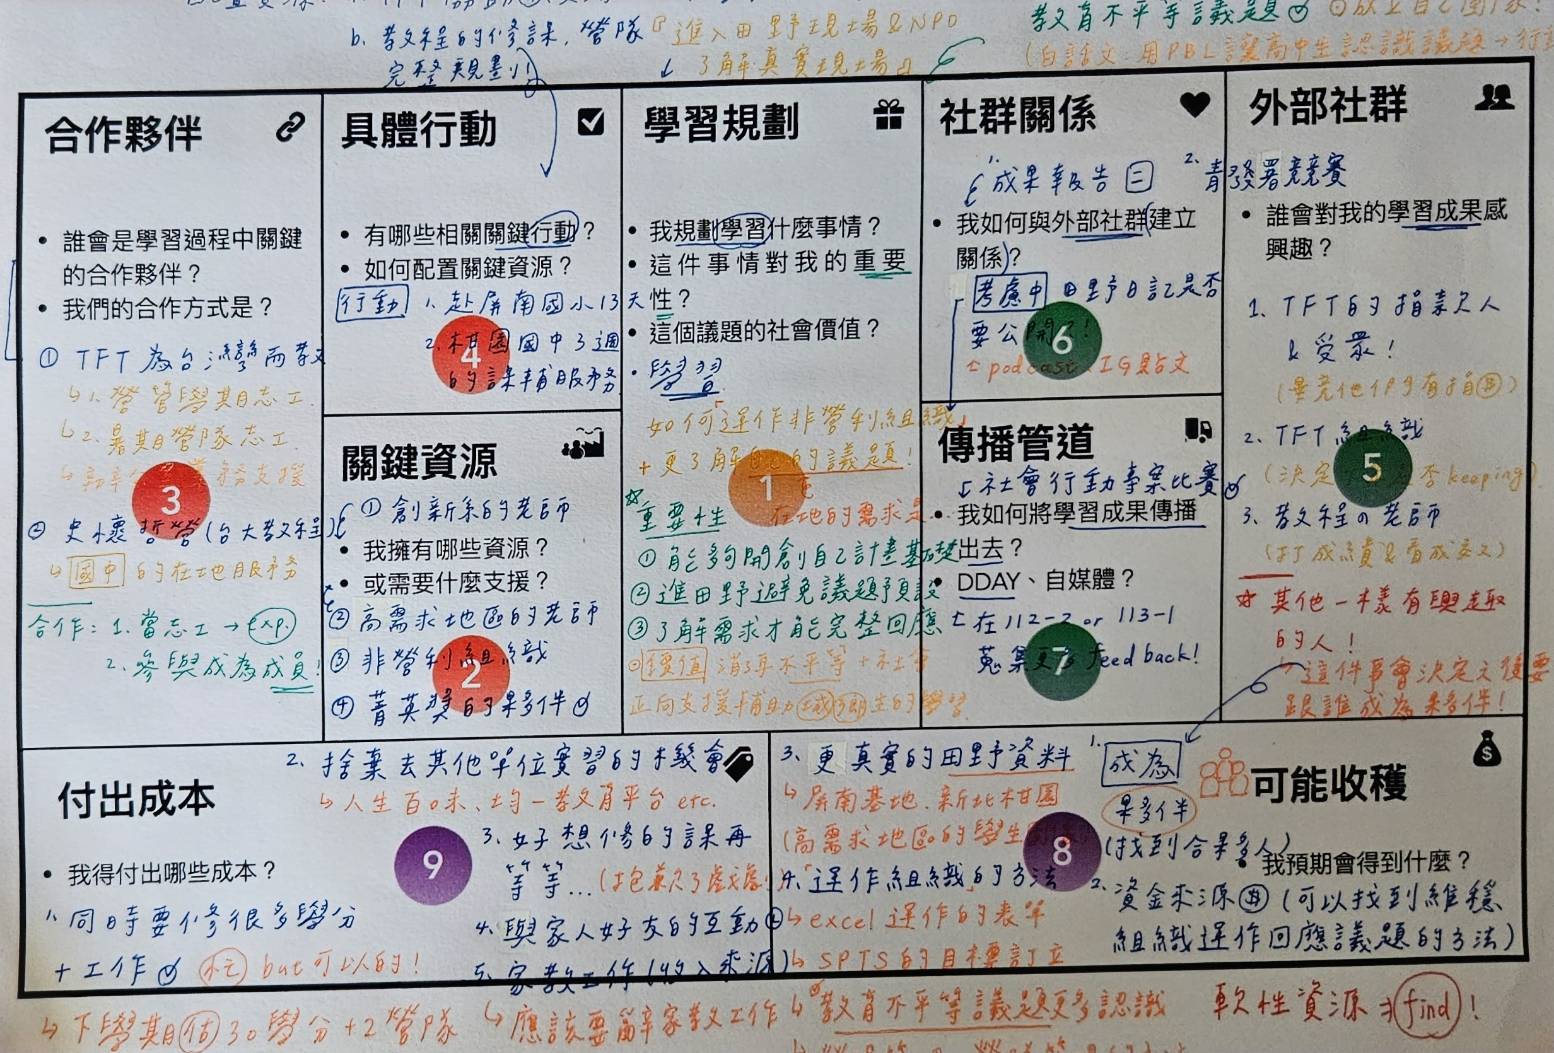 b. 教程的修課,營隊『進入田野現場&NPO
完整規劃!
了解真實現場』
教育不平等議題
(白話文:用PBL讓高中生認識議題→行
合作夥伴
• 誰會是學習過程中關鍵
的合作夥伴?
• 我們的合作方式是?
① TFT 為台灣而教
↳1. 營管學期志工.
↳2. 暑期營隊志工
3
② 史懷哲營(台大教程)
↳國中的在地服務
合作: 1. 當志工→exp.
2. 參與成為成員!
具體行動
• 有哪些相關關鍵行動?
• 如何配置關鍵資源?
行動 1. 赴屏南國小13天
2. 柑園國中3週
的課輔服務
4
關鍵資源
① 創新系的老師
• 我擁有哪些資源?
• 或需要什麼支援?
② 高需求地區的老師
③ 非營利組織
④ 菁英獎的夥伴
2
學習規劃
• 我規劃學習什麼事情?
• 這件事情對我的重要
性?
• 這個議題的社會價值?
• 學習
如何運作非營利組織」
+更了解自己的議題!
1
重要性
在地的需求是..
① 能夠開創自己計畫基礎
② 進田野避免議題預設
③ 了解需求才能完整回應
價值 消弭不平等+社會
正向支援輔助
社群關係
1. 成果報告
2. 青發署競賽
• 我如何與外部社群建立
關係?
考慮中 田野日記是否
要公開!
podcast、IG貼文
6
傳播管道
社會行動專案比賽
• 我如何將學習成果傳播
出去?
• DDAY、自媒體?
在112-2 or 113-1
蒐集更多feed back!
7
外部社群
• 誰會對我的學習成果感
興趣?
1. TFT的捐款人
& 受眾!
(畢竟他們有捐$)
2. TFT 組織
(決定 否keeping)
5
3. 教程の老師
(打成績&看成效)
☆ 其他一樣有興趣
的人!
↳這件事會決定之後要
跟誰成為夥伴!
付出成本
• 我得付出哪些成本?
1. 同時要修很多學分
+工作 忙 but可以的!
↳下學期估30學分+2營隊
2. 捨棄去其他單位實習的機會
↳人生百味、均一教育平台 etc.
9
3. 好想修的課再
等等...
4. 與家人好友的互動
5. 家教工作(收入來源)
↳應該要辭家教工作
可能收穫
• 我預期會得到什麼?
1. 成為
夥伴
(找到合夥人)
2. 資金來源$(可以找到維穩
組織運作回應議題的方法)
3. 更真實的田野資料
↳屏南基地、新北柑園
(高需求地區的學生
8
4. 「運作組織」的方法
↳excel運作的表單
↳SPTS的目標訂立
↳教育不平等議題更多認識
軟性資源 find!